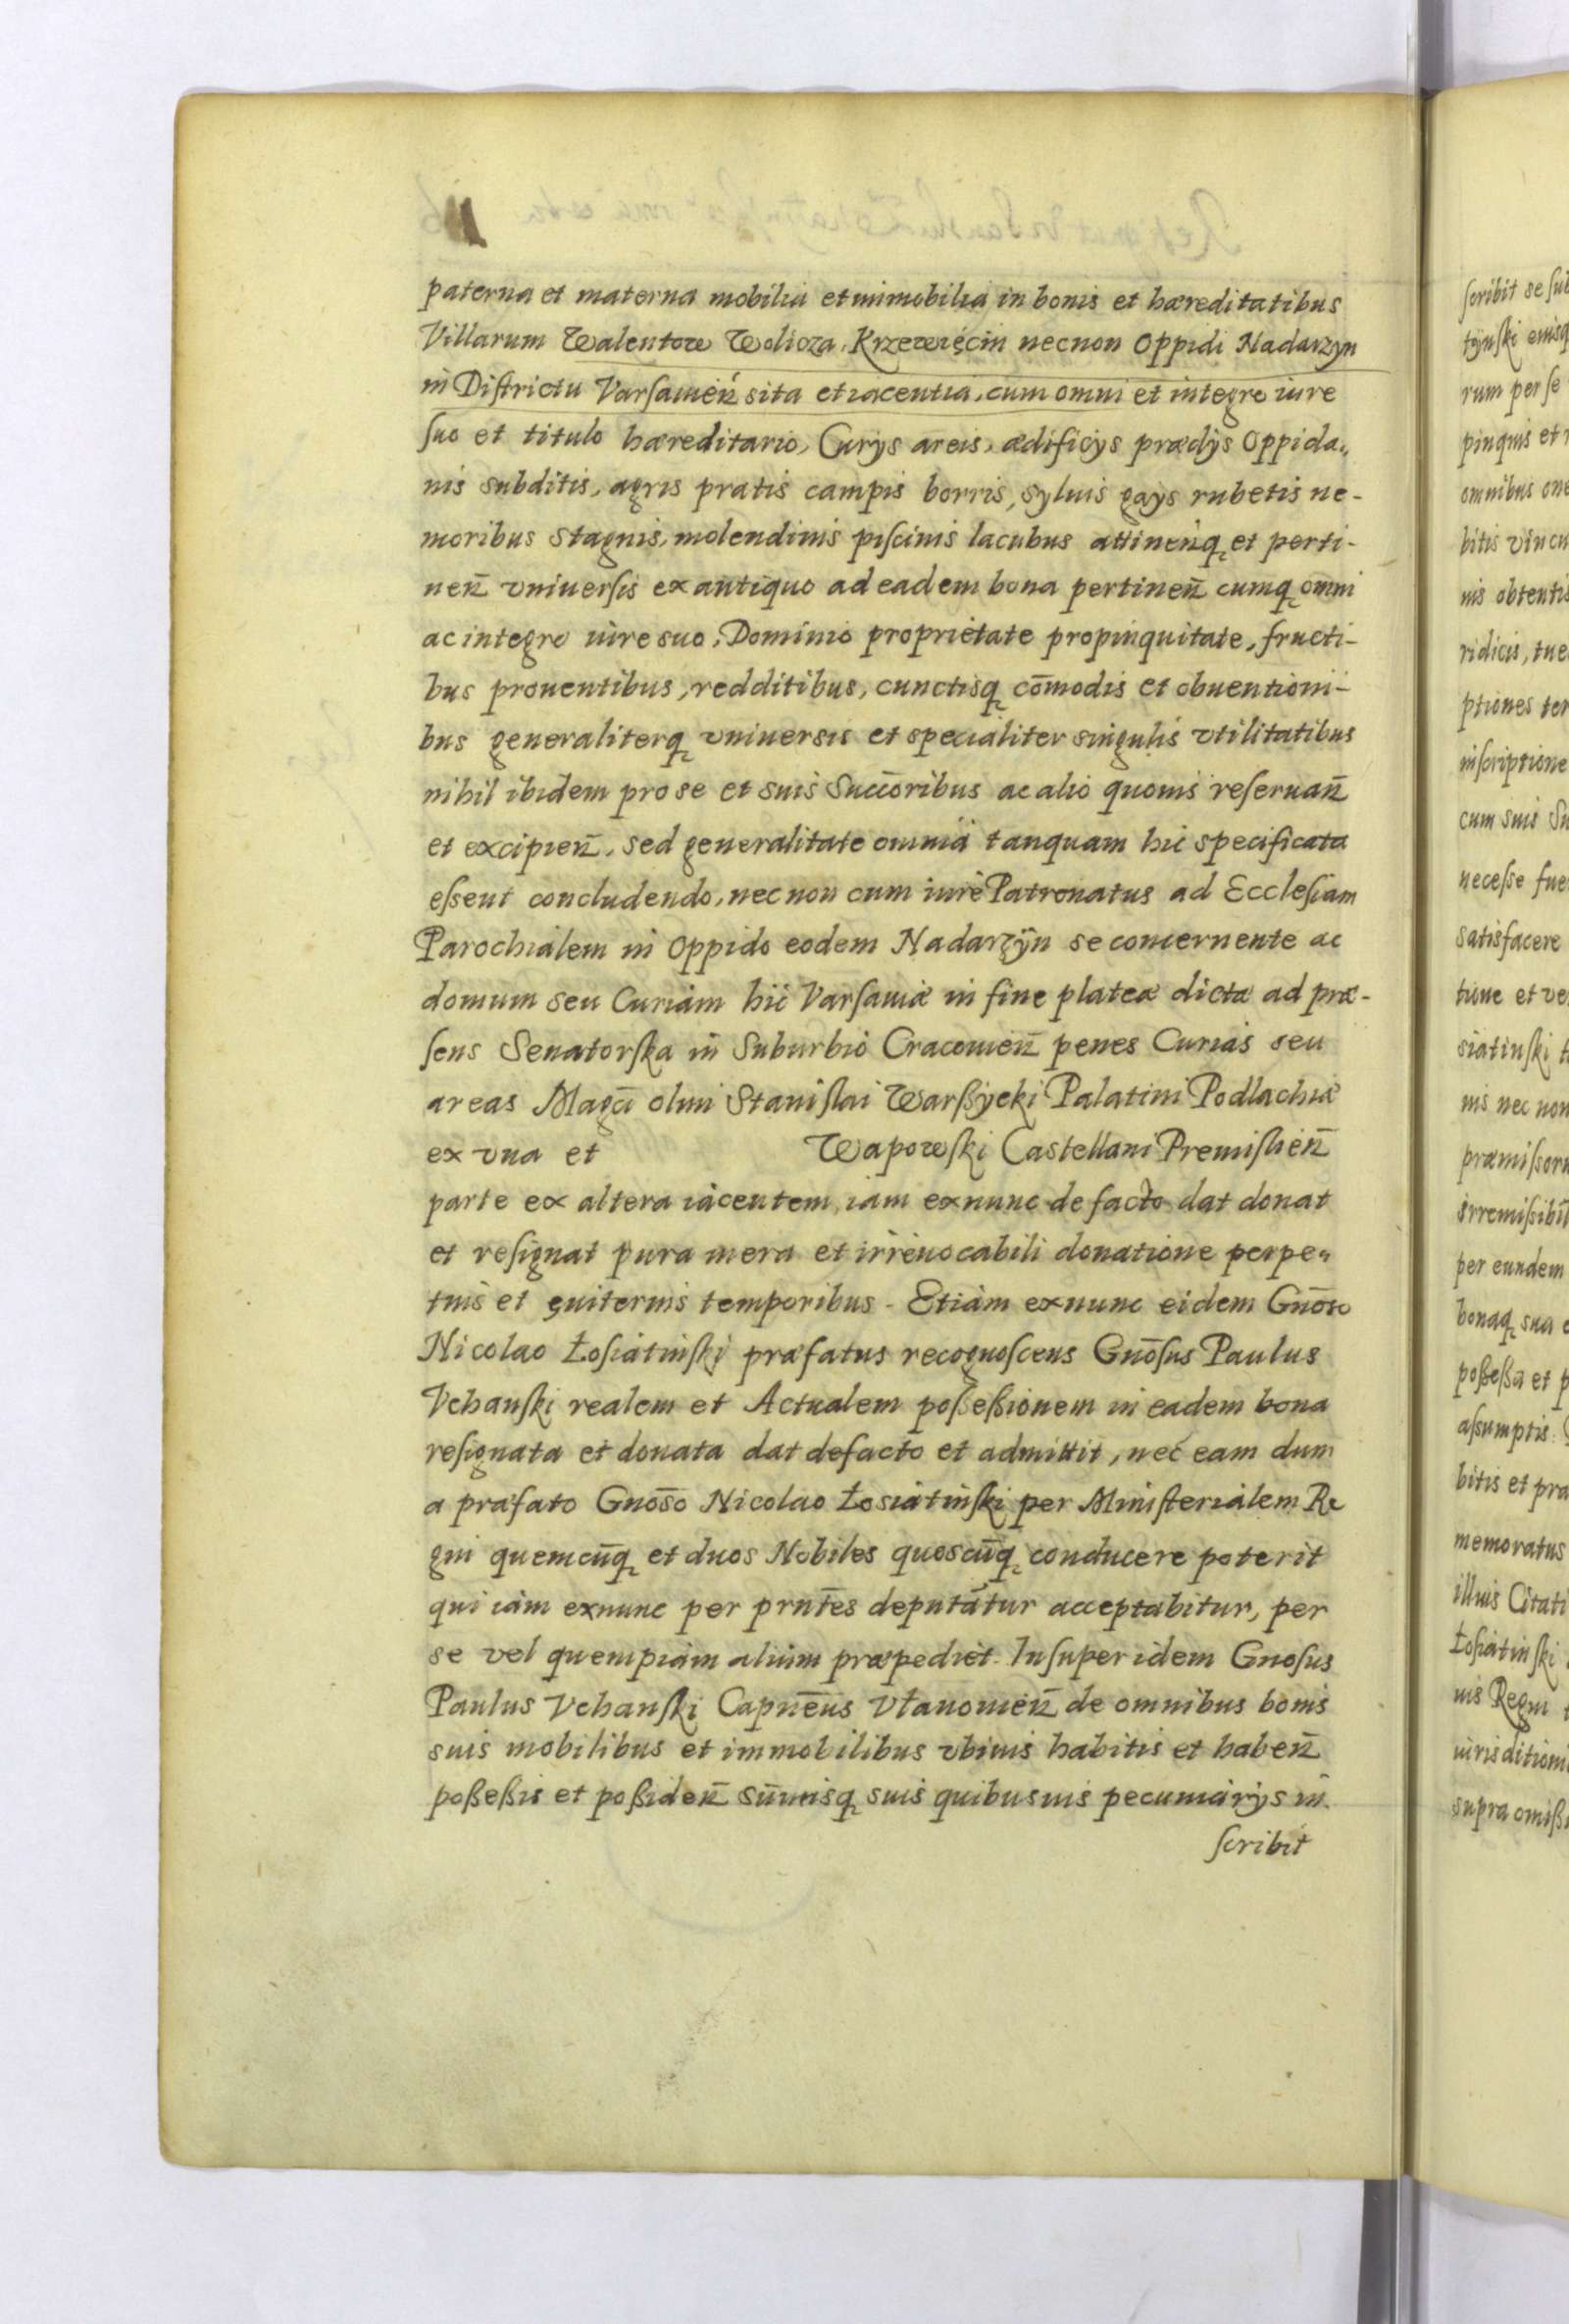 paterna et materna mobilia et immobilia in bonis et hæreditatibus
Villarum Walentow Wolicza, Krzewięcin necnon Oppidi Nadarzyn
in Districtu Varsauień sita et iacentia, cum omni et integro iure
suo et titulo hæreditario, Curijs areis, ædificijs prædijs Oppida„
nis subditis, agris pratis campis borris, syluis gays rubetis ne-
moribus stagnis, molendinis piscinis lacubus attineñq et perti-
neñ vniuersis ex antiquo ad eadem bona pertineñ cumq omni
ac integro iure suo, Dominio proprietate propinquitate, fructi-
bus prouentibus, redditibus, cunctisq com̄odis et obuentioni-
bus generaliterq vniuersis et specialiter singulis vtilitatibus
nihil ibidem pro se et suis Succ̄oribus ac alio quouis reseruañ
et excipieñ, sed generalitate omnia tanquam hic specificata
essent concludendo, nec non cum iure Patronatus ad Ecclesiam
Parochialem in Oppido eodem Nadarzÿn se concernente ac
domum seu Curiam hic Varsauiæ in fine plateæ dictæ ad præ-
sens Senatorska in Suburbio Cracouieñ penes Curias seu
areas Magc̄i olim Stanislai Warßycki Palatini Podlachiæ
ex vna et Wapowski Castellani Premislieñ
parte ex altera iacentem, iam exnunc de facto dat donat
et resignat pura mera et irreuocabili donatione perpe„
tuis et ęuiternis temporibus. Etiam exnunc eidem Gnōso
Nicolao Łosiatinski præfatus recognoscens Gnōsus Paulus
Vchanski realem et Actualem poßeßionem in eadem bona
resignata et donata dat defacto et admittit, nec eam dum
a præfato Gnoso Nicolao Łosiatinski per Ministerialem Re
gni quemcūq et duos Nobiles quoscūq conducere poterit
qui iam exnunc per prnt̄es deputātur acceptabitur, per
se vel quempiam alium præpediet. Insuper idem Gnosus
Paulus Vchanski Capnēus Vłanouieñ de omnibus bonis
suis mobilibus et immobilibus vbiuis habitis et habeñ
poßeßis et poßideñ sum̄isq suis quibusuis pecuniarijs in
scribit